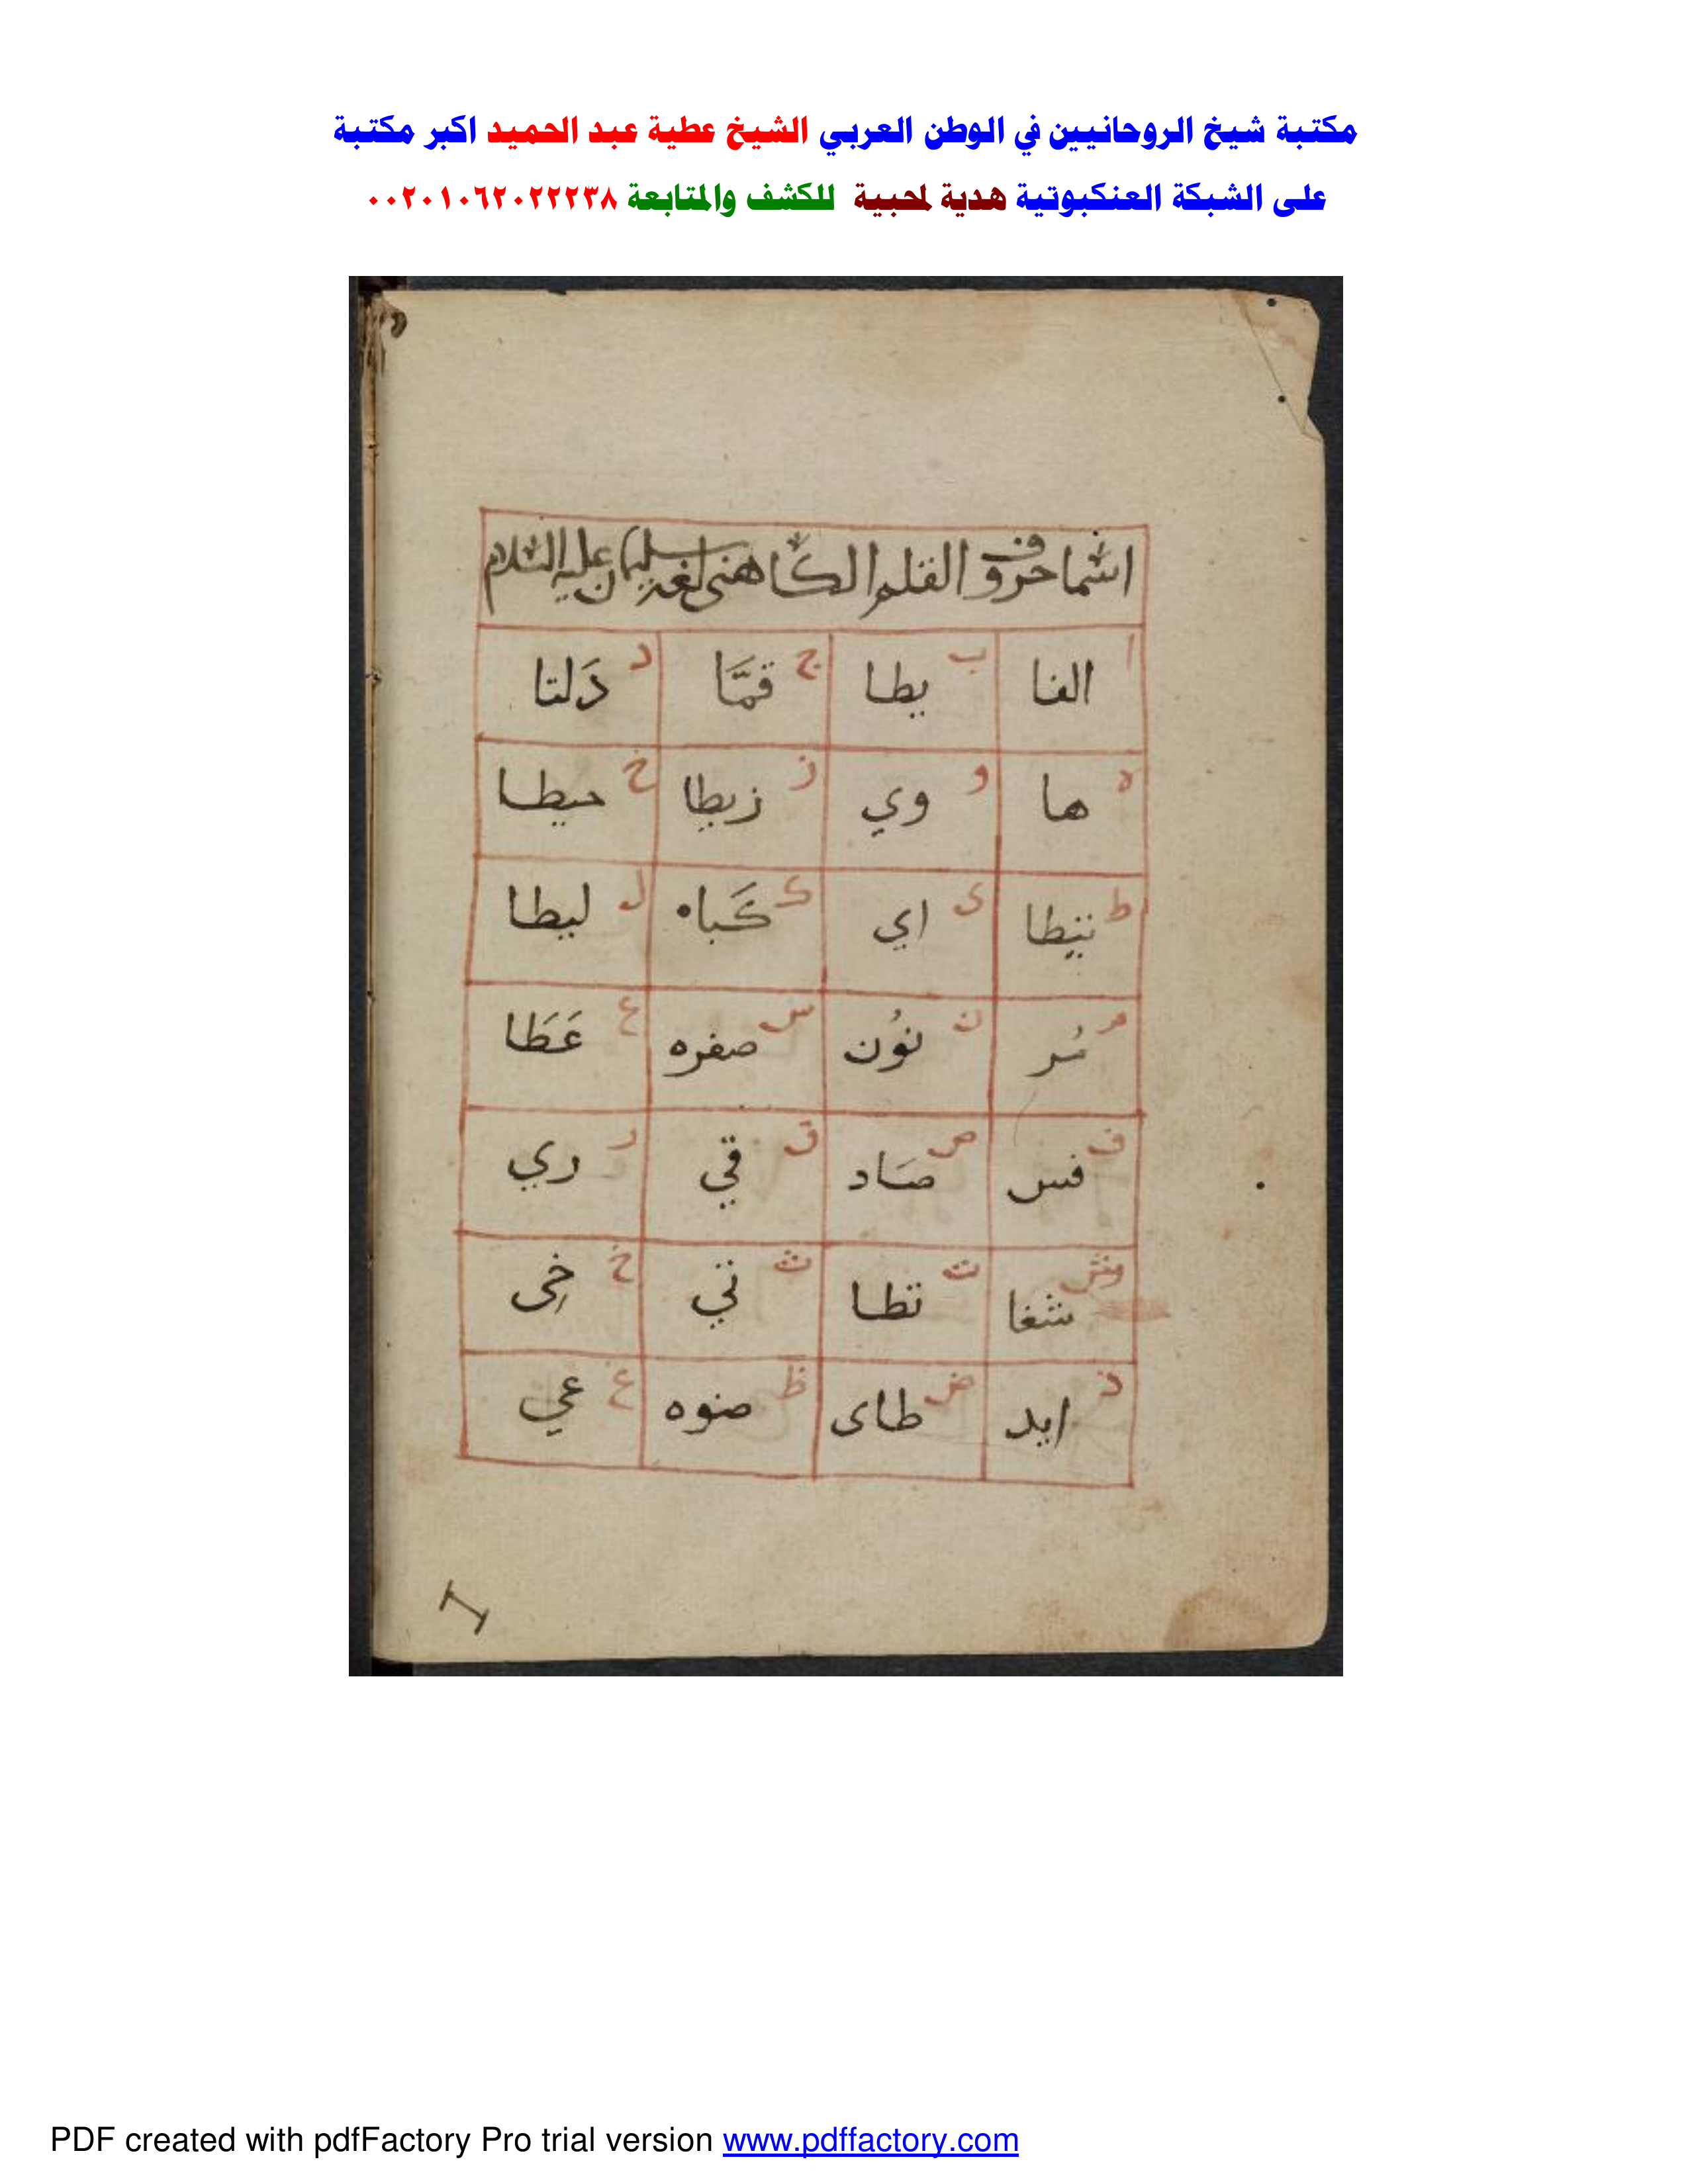 مكتبة شيخ الروحانيين في الوطن العربي الشيخ عطية عبد الحميد اكبر مكتبة
على الشبكة العنكبوتية هدية لمحبية للكشف والمتابعة ٠٠٢٠١٠٦٢٠٢٢٢٣٨
اسما حروف القلم الكاهنى لغة سليمان عليه السلام
ا الفا ب بطا ج قمَّا د دَلتا
ه ها و وي ز زيطا ح حيطا
ط تيطا ى اي ك كَباه ل ليطا
م مُر ن نوُن س صفره ع عَطَا
ف فس ص صَاد ق قي ر ري
ش شغا ت تطا ث تي خ خِى
ذ ايد ض طاى ظ صنوه غ غي
PDF created with pdfFactory Pro trial version www.pdffactory.com